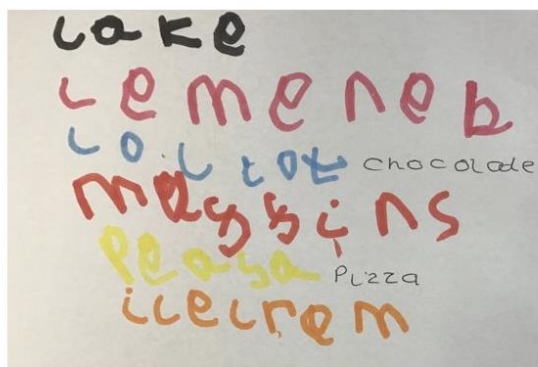 cake
cemeneb
coccot chocolade
muffins
Peasa Pizza
icecrem